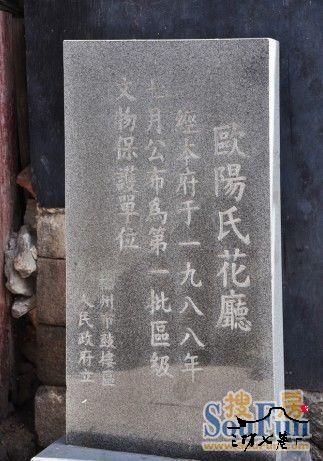 歐陽氏花廳
經本府于一九八八年
七月公布為第一批區級
文物保護單位
福州市鼓樓區
人民政府立
搜房
SouFun
三坊七巷